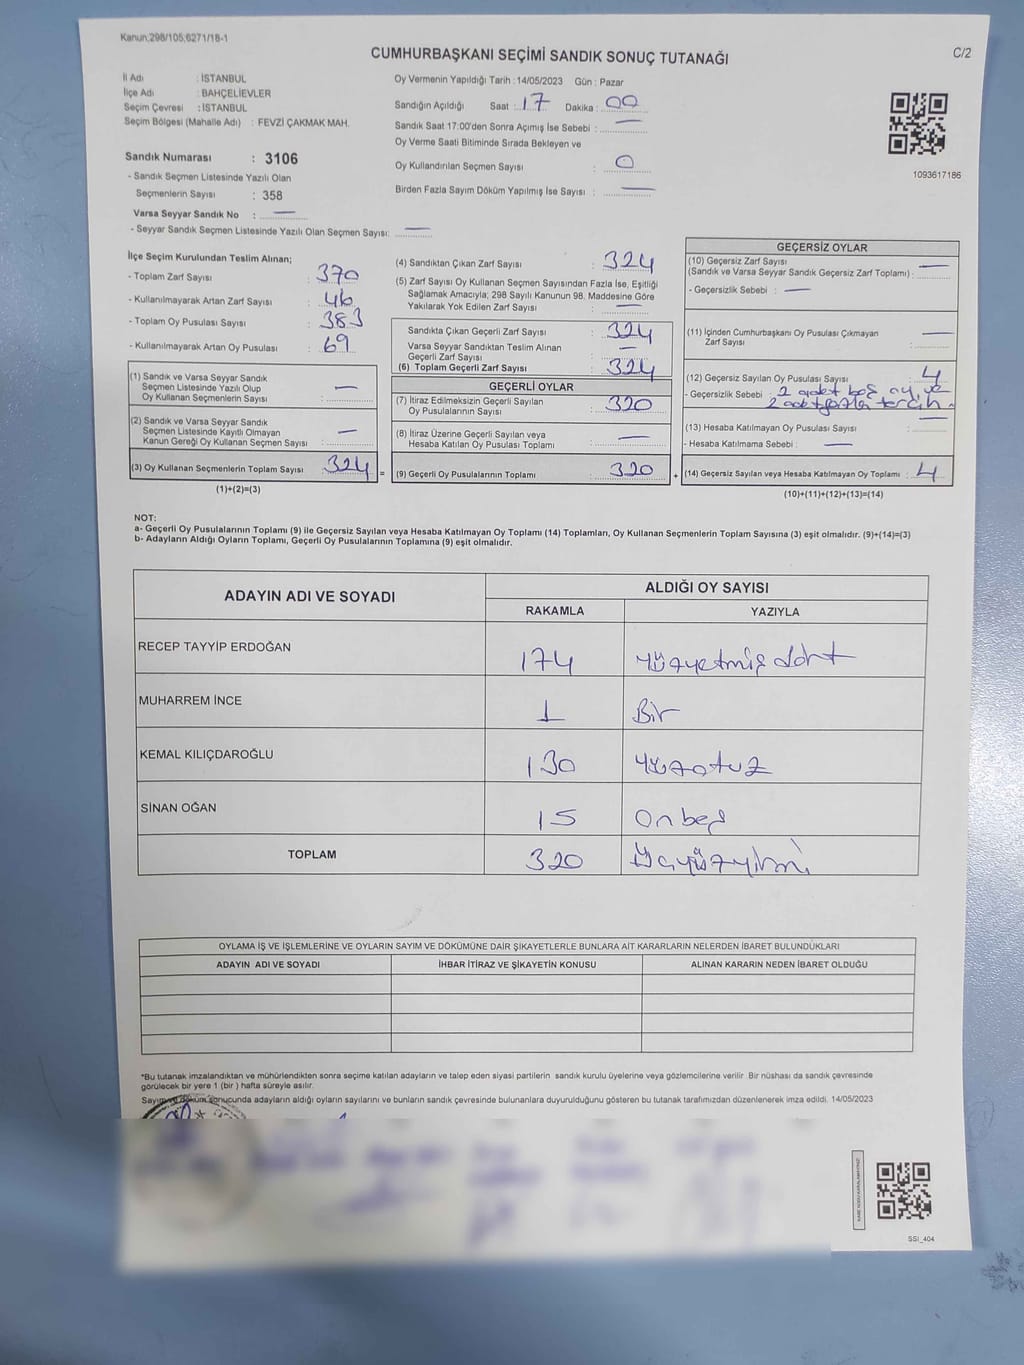 Kanun:298/105;6271/18-1
C/2
CUMHURBAŞKANI SEÇİMİ SANDIK SONUÇ TUTANAĞI
İl Adı : İSTANBUL
İlçe Adı : BAHÇELİEVLER
Seçim Çevresi : İSTANBUL
Seçim Bölgesi (Mahalle Adı) : FEVZİ ÇAKMAK MAH.
Sandık Numarası : 3106
- Sandık Seçmen Listesinde Yazılı Olan
Seçmenlerin Sayısı : 358
Varsa Seyyar Sandık No : —
- Seyyar Sandık Seçmen Listesinde Yazılı Olan Seçmen Sayısı: —
Oy Vermenin Yapıldığı Tarih : 14/05/2023 Gün : Pazar
Sandığın Açıldığı Saat : 17 Dakika : 00
Sandık Saat 17:00'den Sonra Açımış İse Sebebi : —
Oy Verme Saati Bitiminde Sırada Bekleyen ve
Oy Kullandırılan Seçmen Sayısı : 0
Birden Fazla Sayım Döküm Yapılmış İse Sayısı : —
1093617186
İlçe Seçim Kurulundan Teslim Alınan;
- Toplam Zarf Sayısı : 370
- Kullanılmayarak Artan Zarf Sayısı : 46
- Toplam Oy Pusulası Sayısı : 383
- Kullanılmayarak Artan Oy Pusulası : 69
(1) Sandık ve Varsa Seyyar Sandık
Seçmen Listesinde Yazılı Olup
Oy Kullanan Seçmenlerin Sayısı : —
(2) Sandık ve Varsa Seyyar Sandık
Seçmen Listesinde Kayıtlı Olmayan
Kanun Gereği Oy Kullanan Seçmen Sayısı : —
(3) Oy Kullanan Seçmenlerin Toplam Sayısı : 324 =
(1)+(2)=(3)
(4) Sandıktan Çıkan Zarf Sayısı : 324
(5) Zarf Sayısı Oy Kullanan Seçmen Sayısından Fazla İse, Eşitliği
Sağlamak Amacıyla; 298 Sayılı Kanunun 98. Maddesine Göre
Yakılarak Yok Edilen Zarf Sayısı : —
Sandıkta Çıkan Geçerli Zarf Sayısı : 324
Varsa Seyyar Sandıktan Teslim Alınan
Geçerli Zarf Sayısı : —
(6) Toplam Geçerli Zarf Sayısı : 324
GEÇERLİ OYLAR
(7) İtiraz Edilmeksizin Geçerli Sayılan
Oy Pusulalarının Sayısı : 320
(8) İtiraz Üzerine Geçerli Sayılan veya
Hesaba Katılan Oy Pusulası Toplamı : —
(9) Geçerli Oy Pusulalarının Toplamı : 320 +
GEÇERSİZ OYLAR
(10) Geçersiz Zarf Sayısı
(Sandık ve Varsa Seyyar Sandık Geçersiz Zarf Toplamı) : —
- Geçersizlik Sebebi : —
(11) İçinden Cumhurbaşkanı Oy Pusulası Çıkmayan
Zarf Sayısı : —
(12) Geçersiz Sayılan Oy Pusulası Sayısı : 4
- Geçersizlik Sebebi : 2 adet boş oy ve
2 adet fazla tercih
(13) Hesaba Katılmayan Oy Pusulası Sayısı : —
- Hesaba Katılmama Sebebi : —
(14) Geçersiz Sayılan veya Hesaba Katılmayan Oy Toplamı : 4
(10)+(11)+(12)+(13)=(14)
NOT:
a- Geçerli Oy Pusulalarının Toplamı (9) ile Geçersiz Sayılan veya Hesaba Katılmayan Oy Toplamı (14) Toplamları, Oy Kullanan Seçmenlerin Toplam Sayısına (3) eşit olmalıdır. (9)+(14)=(3)
b- Adayların Aldığı Oyların Toplamı, Geçerli Oy Pusulalarının Toplamına (9) eşit olmalıdır.
ADAYIN ADI VE SOYADI ALDIĞI OY SAYISI
RAKAMLA YAZIYLA
RECEP TAYYİP ERDOĞAN 174 Yüzyetmiş dört
MUHARREM İNCE 1 Bir
KEMAL KILIÇDAROĞLU 130 Yüzotuz
SİNAN OĞAN 15 Onbeş
TOPLAM 320 Üçyüzyirmi
OYLAMA İŞ VE İŞLEMLERİNE VE OYLARIN SAYIM VE DÖKÜMÜNE DAİR ŞİKAYETLERLE BUNLARA AİT KARARLARIN NELERDEN İBARET BULUNDUKLARI
ADAYIN ADI VE SOYADI İHBAR İTİRAZ VE ŞİKAYETİN KONUSU ALINAN KARARIN NEDEN İBARET OLDUĞU
*Bu tutanak imzalandıktan ve mühürlendikten sonra seçime katılan adayların ve talep eden siyasi partilerin sandık kurulu üyelerine veya gözlemcilerine verilir. Bir nüshası da sandık çevresinde
görülecek bir yere 1 (bir) hafta süreyle asılır.
Sayım ve döküm sonucunda adayların aldığı oyların sayılarını ve bunların sandık çevresinde bulunanlara duyurulduğunu gösteren bu tutanak tarafımızdan düzenlenerek imza edildi. 14/05/2023
SSI_404